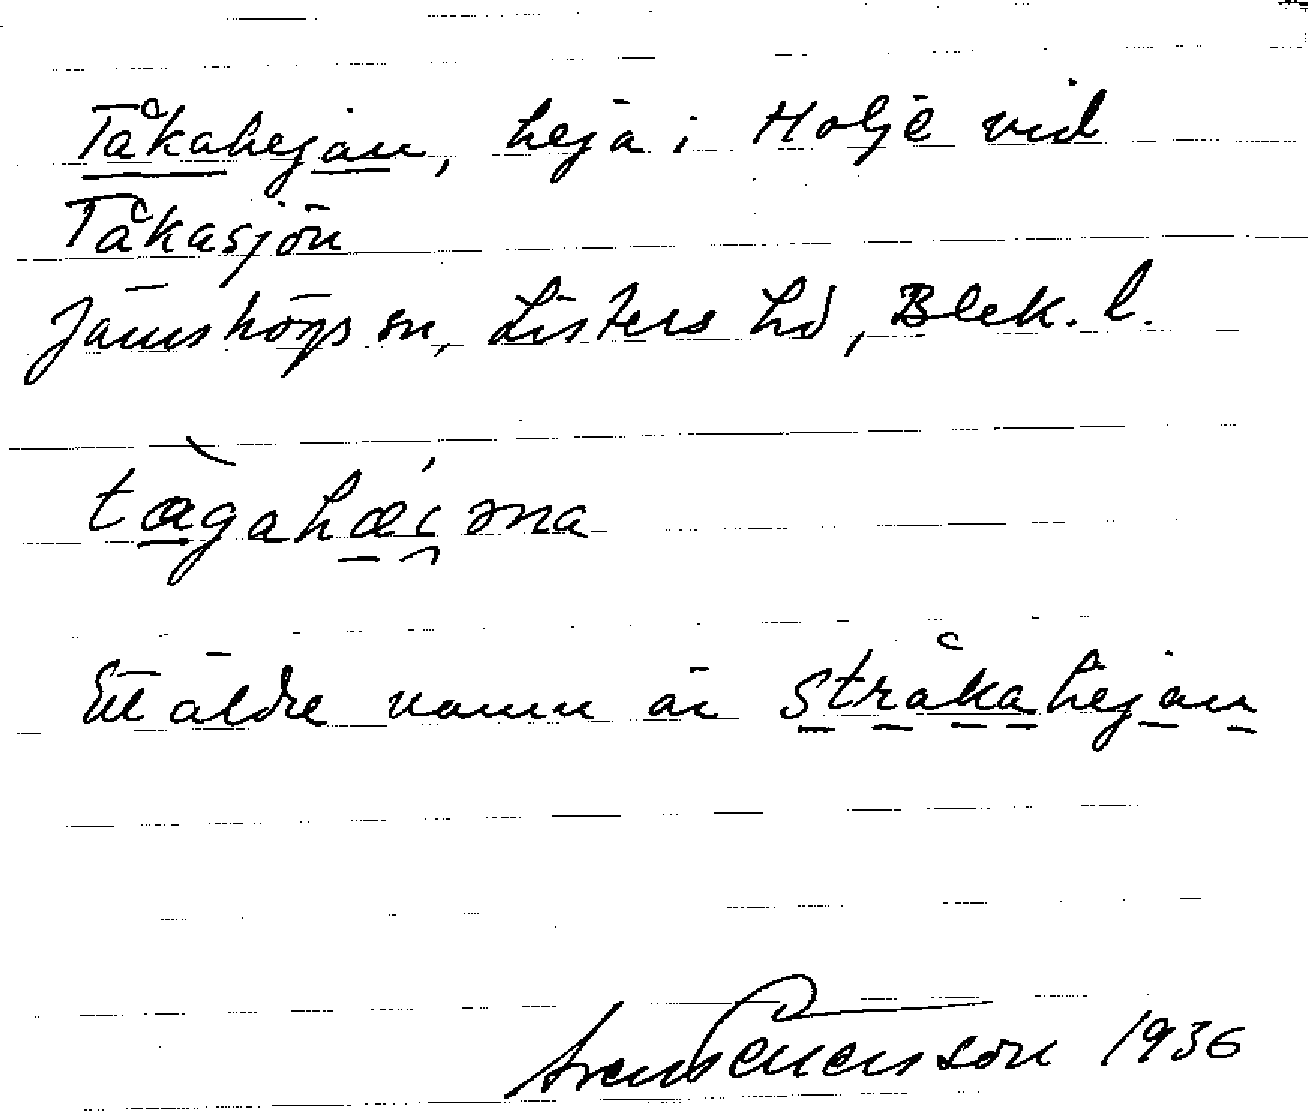 Tåkahejan, heja i Holje vid
Tåkasjön
Jämshögs sn, Listers hd, Blek. l.
tàgahǽi̯əna
Ett äldre namn är Stråkahejan
Sven Svensson 1936